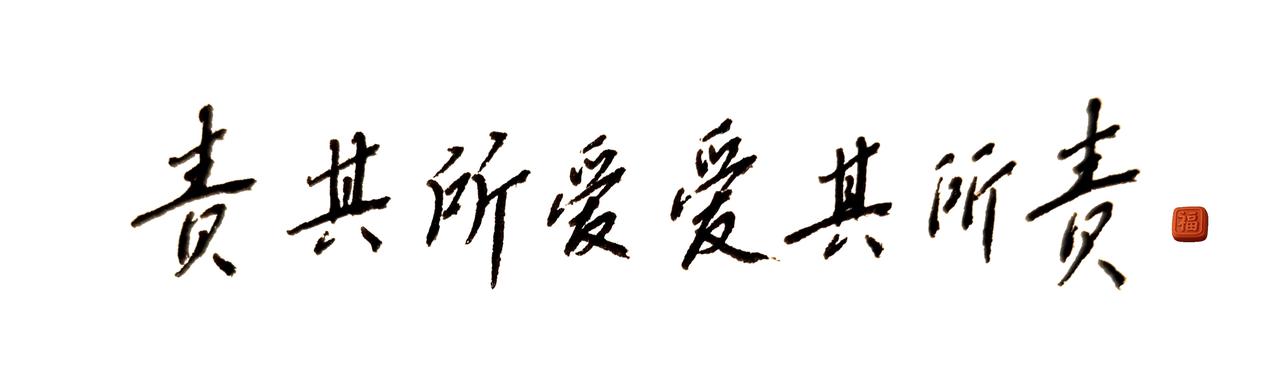 责其所爱爱其所责
福